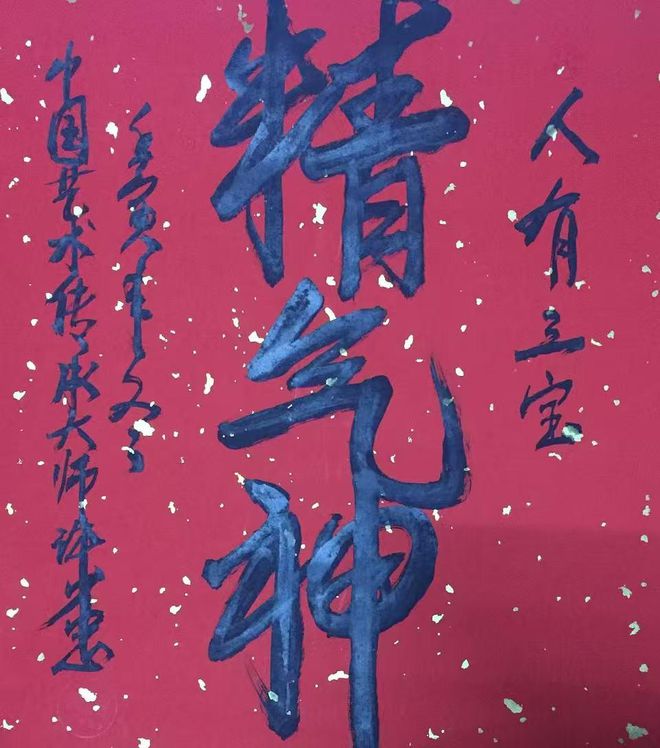 人有三宝
精气神
壬寅年冬
中国艺术传承大师